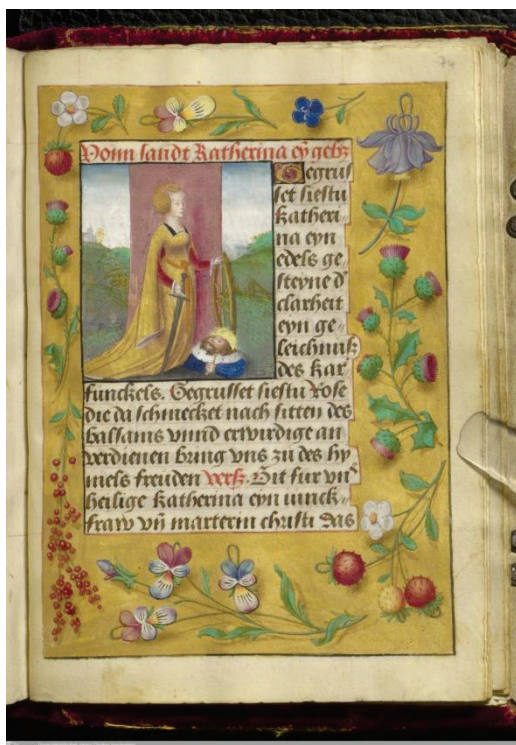 74
Vonn sandt Katherina eÿ gebz
Gegrus
set siestu
katheri
na eyn
edels ge
steyne d'
clarheit
eyn ge„
leichnuß
des kar
funckels. Gegrusset siestu Rose
die da schmecket nach sitten des
balsams vnnd erwirdige an
verdienen bring vns zu des hy
mels freuden versz. Bit fur vn̄s
heilige katherina eyn iunck„
fraw vn̄ marterin christi Das